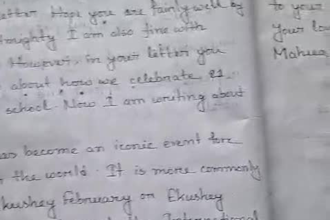 letter Hope you are fairly well by
to your
thoughty I am also fine with
Your lo
However, in your letter you
Mahua
about how we celebrate 21
school. Now I am writing about
as become an iconic event fore
the world. It is more commonly
kushey February or Ekushey
International